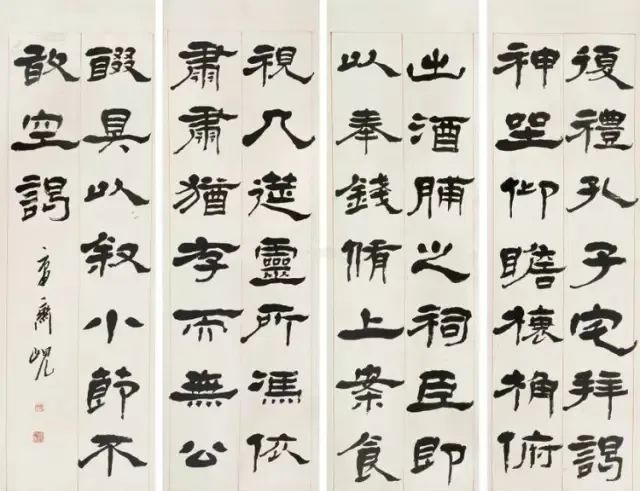 復禮孔子宅拜謁
神坐仰瞻榱桷俯
出酒脯之祠臣即
以奉錢脩上案食
視几筵靈所馮依
肅肅猶存而無公
醊具以叙小節不
敢空謁